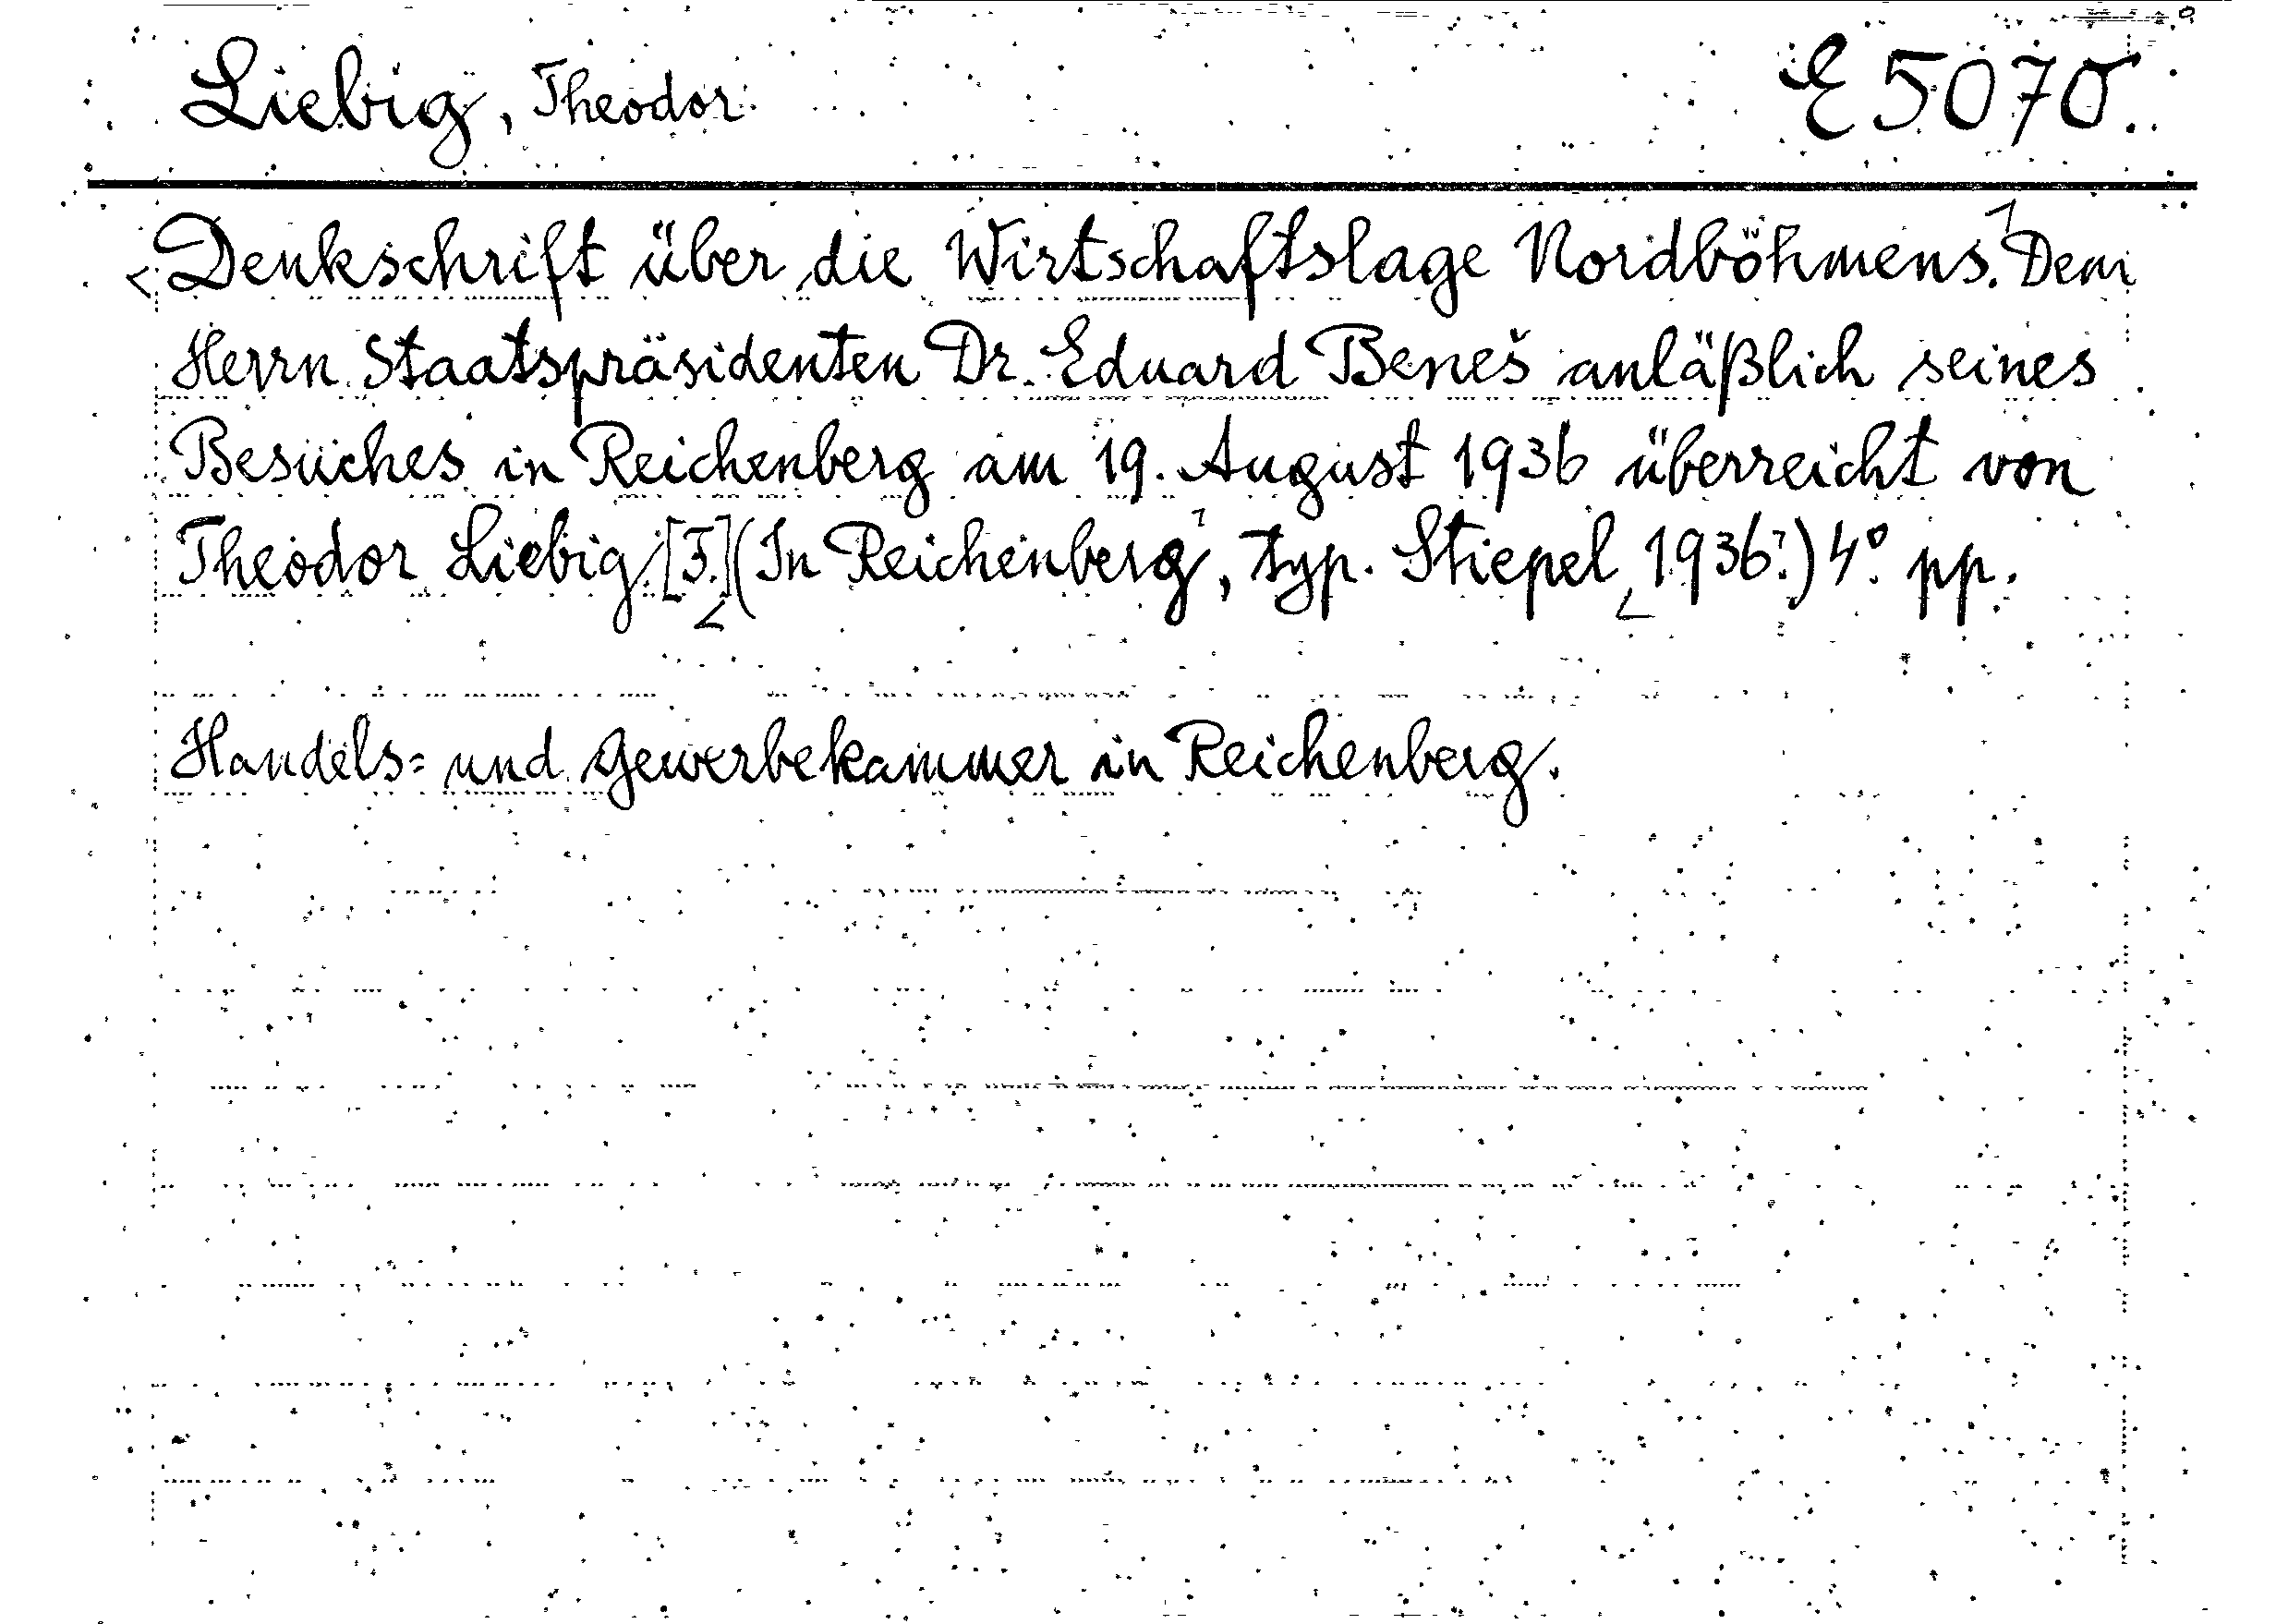 Liebig, Theodor E 5070.
<Denkschrift über die Wirtschaftslage Nordböhmens.> Dem
Herrn Staatspräsidenten Dr. Eduard Beneš anläßlich seines
Besuches in Reichenberg am 19. August 1936 überreicht von
Theodor Liebig. [F.] (In Reichenberg, typ. Stiepel, 1936.) 4° pp.
Handels- und Gewerbekammer in Reichenberg.